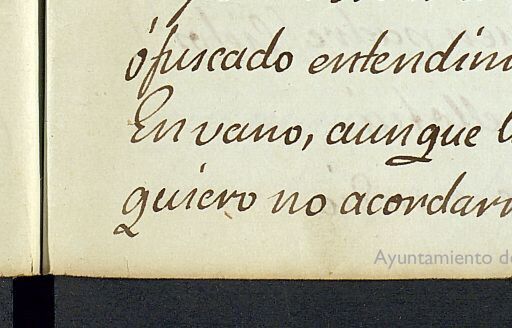 ófuscado entendim
En vano, aunque l
quiero no acordarm
Ayuntamiento de